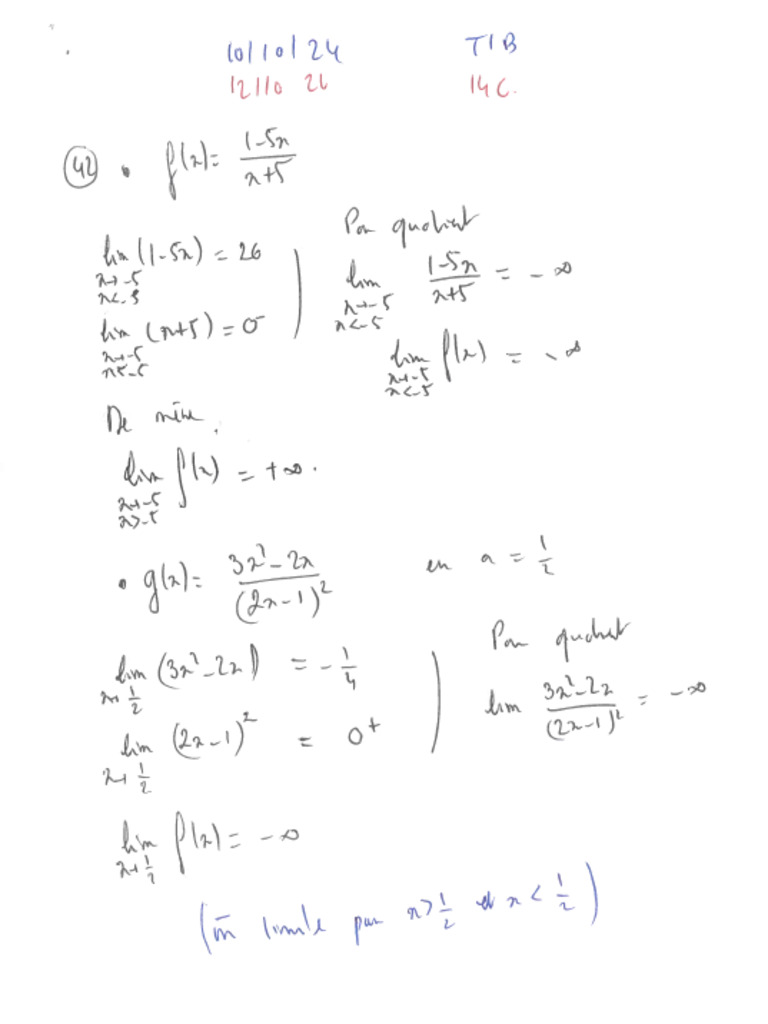 10/10/24 T1B
12/10 26 14C.
(42) • f(x)= (1-5x)/(x+5)
lim (1-5x) = 26
x→-5
x<-5
lim (x+5) = 0⁻
x→-5
x<-5
Par quotient
lim (1-5x)/(x+5) = -∞
x→-5
x<-5
lim f(x) = -∞
x→-5
x<-5
De même,
lim f(x) = +∞.
x→-5
x>-5
• g(x)= (3x²-2x)/(2x-1)² en a = 1/2
lim (3x²-2x) = -1/4
x→1/2
lim (2x-1)² = 0⁺
x→1/2
Par quotient
lim (3x²-2x)/(2x-1)² = -∞
lim f(x) = -∞
x→1/2
(m̄ limite par x>1/2 et x<1/2)